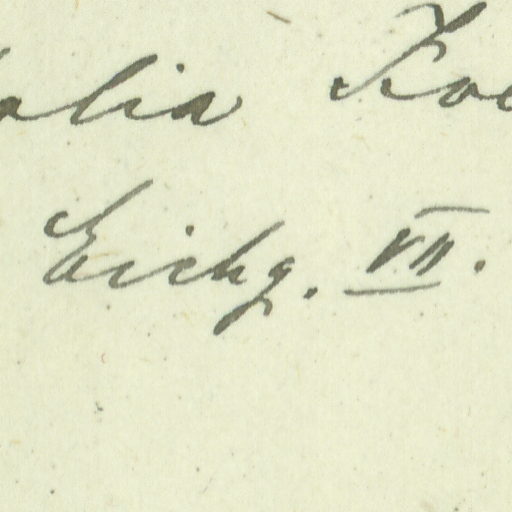 alia Koe
Eichg. VII.